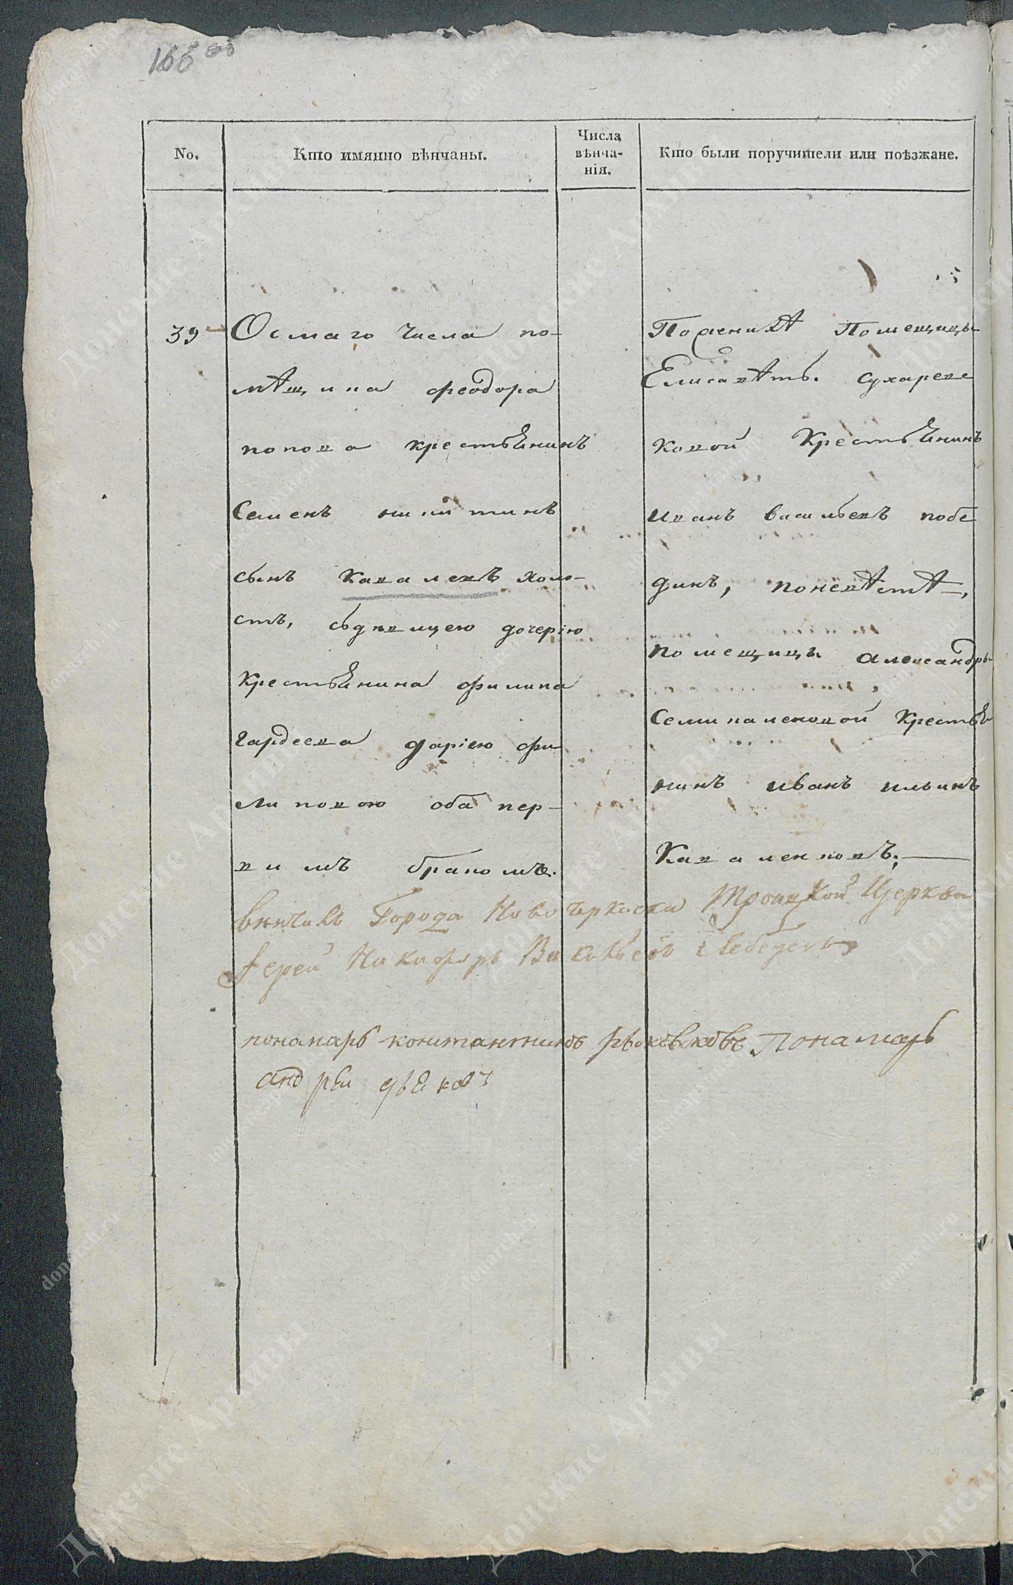 166 об
No.
Кто имянно вѣнчаны.
Числа вѣнча-
нія.
Кто были поручители или поѣзжане.
39
Осмаго Числа по-
мѣщика феодора
попова крестьянинъ
Семенъ никитинъ
сынъ Каваленъ холо-
стъ, съдѣвицею дочерію
крестьянина филипа
гардеева даріею фи
липовою оба пер-
вимъ бракомъ.
Поженихѣ Помещицы
Елисаветы. сухареве
ковой Крестьянинъ
иванъ васильевъ побе
динъ, поневѣстѣ,
помещицы александры
Семикаленовой Кресть
нинъ иванъ ильинъ
Каваленковъ;
венчалъ Города Новочеркаска Троицкой Церкви
Іерей Никифоръ Васильевъ Лебедевъ
пономарь константиновъ Пономарь
андрей